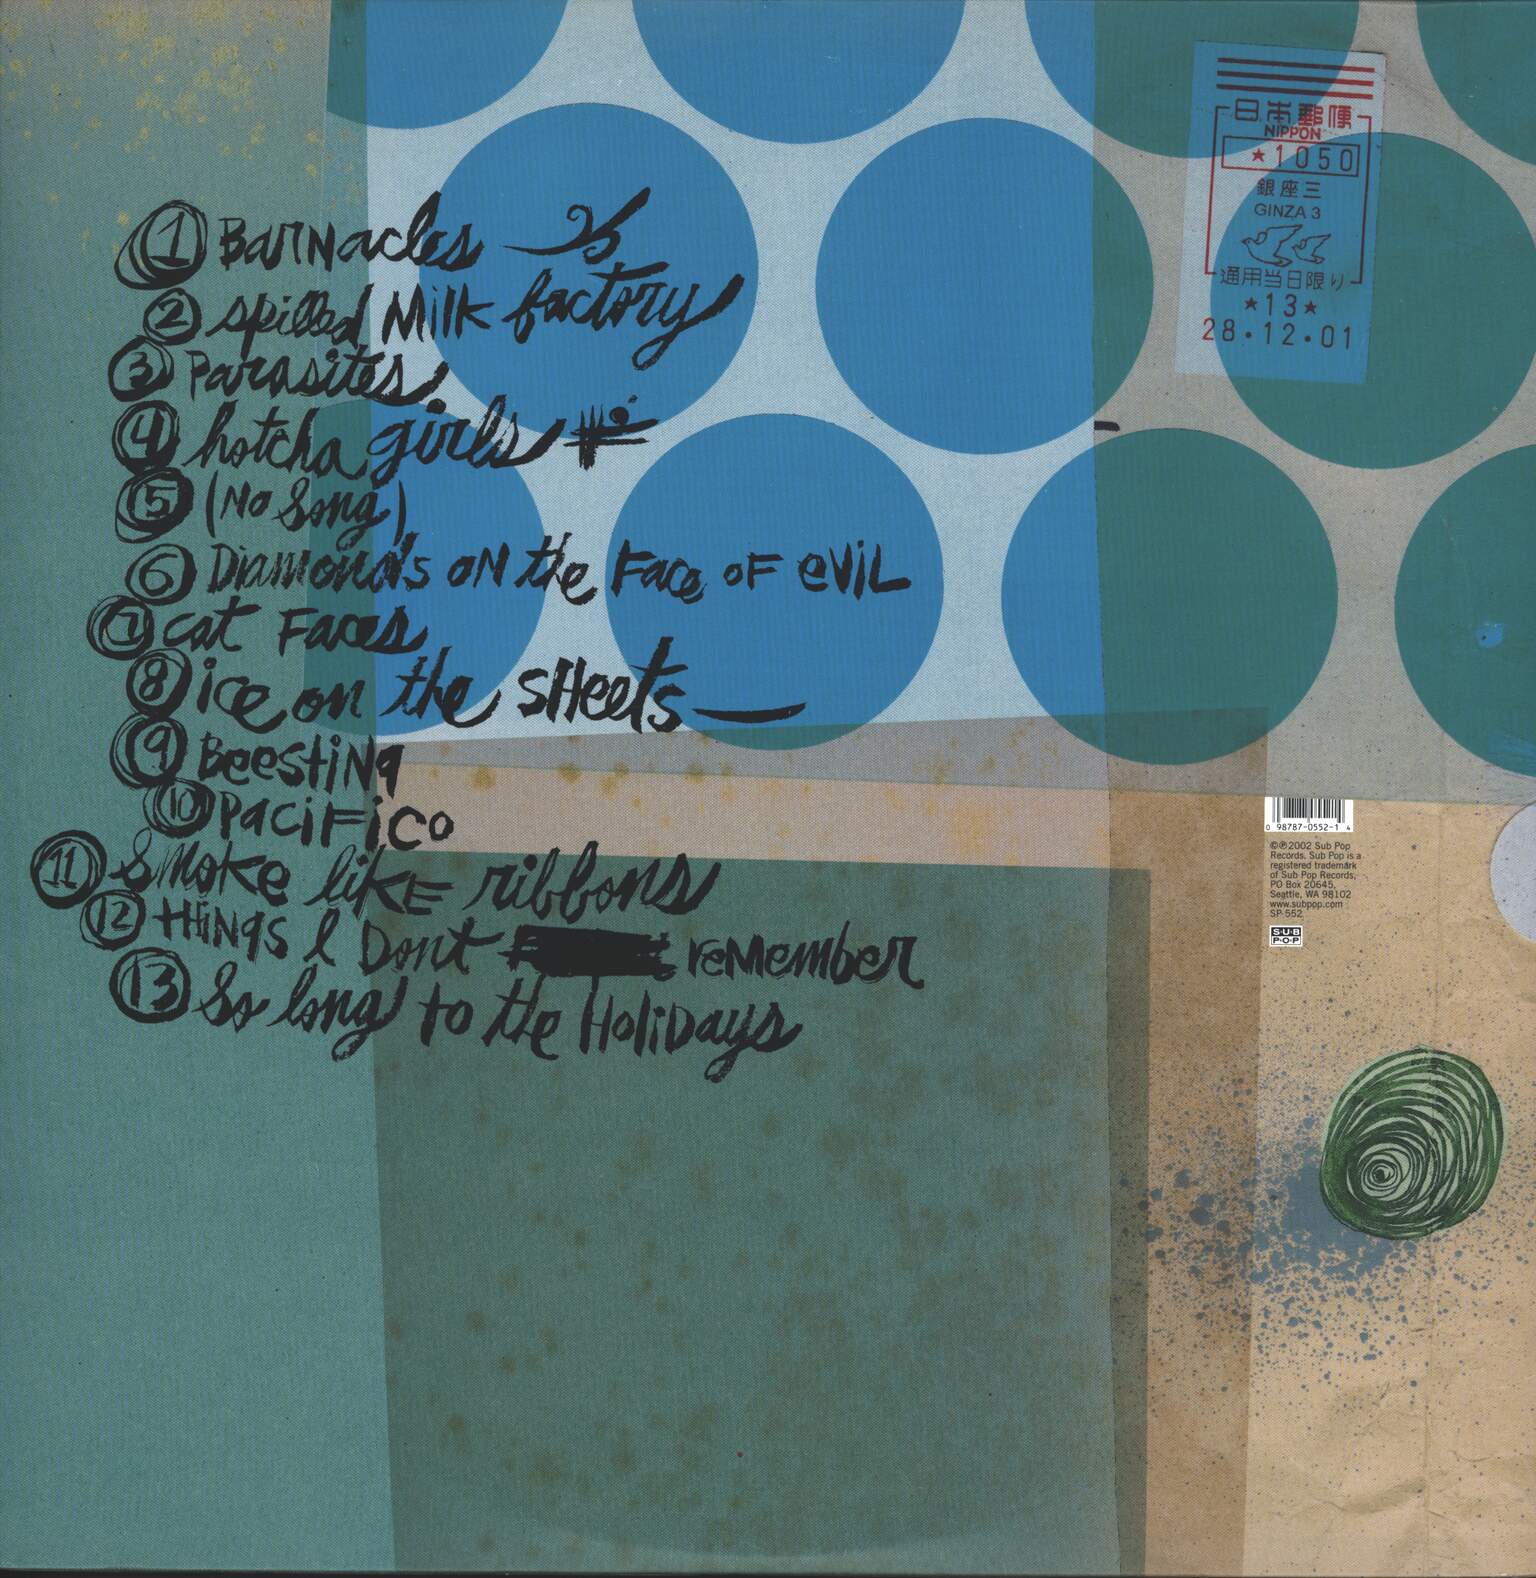 1 Barnacles
2 spilled Milk factory
3 Parasites
4 hotcha girls
5 (No Song)
6 Diamonds on the Face of evil
7 cat Faces
8 ice on the sheets
9 Beesting
10 Pacifico
11 Smoke like ribbons
12 things I Dont remember
13 So long to the Holidays
日本郵便
NIPPON
★1050
銀座三
GINZA 3
通用当日限り
★13★
28・12・01
0 98787-0552-1 4
©℗2002 Sub Pop
Records. Sub Pop is a
registered trademark
of Sub Pop Records,
PO Box 20645,
Seattle, WA 98102
www.subpop.com
SP 552
SUB
POP